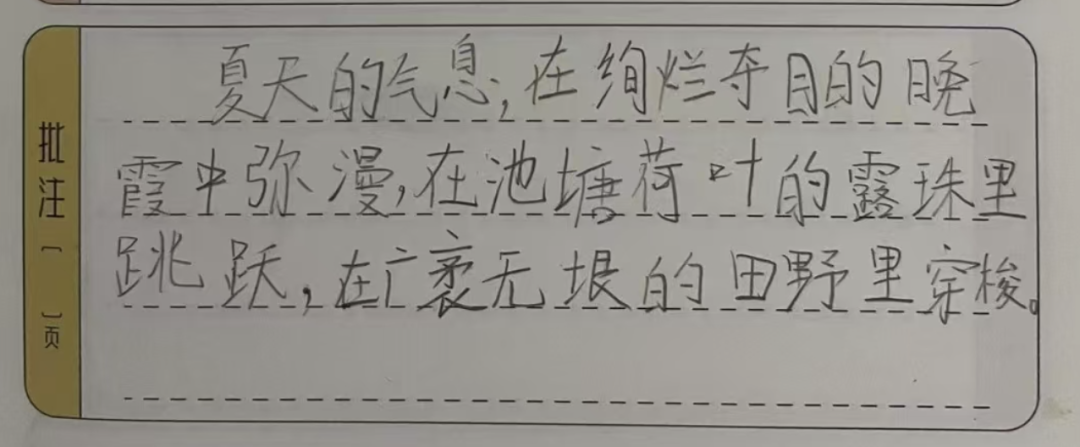 批注〔 〕页
夏天的气息,在绚烂夺目的晚
霞中弥漫,在池塘荷叶的露珠里
跳跃,在广袤无垠的田野里穿梭。